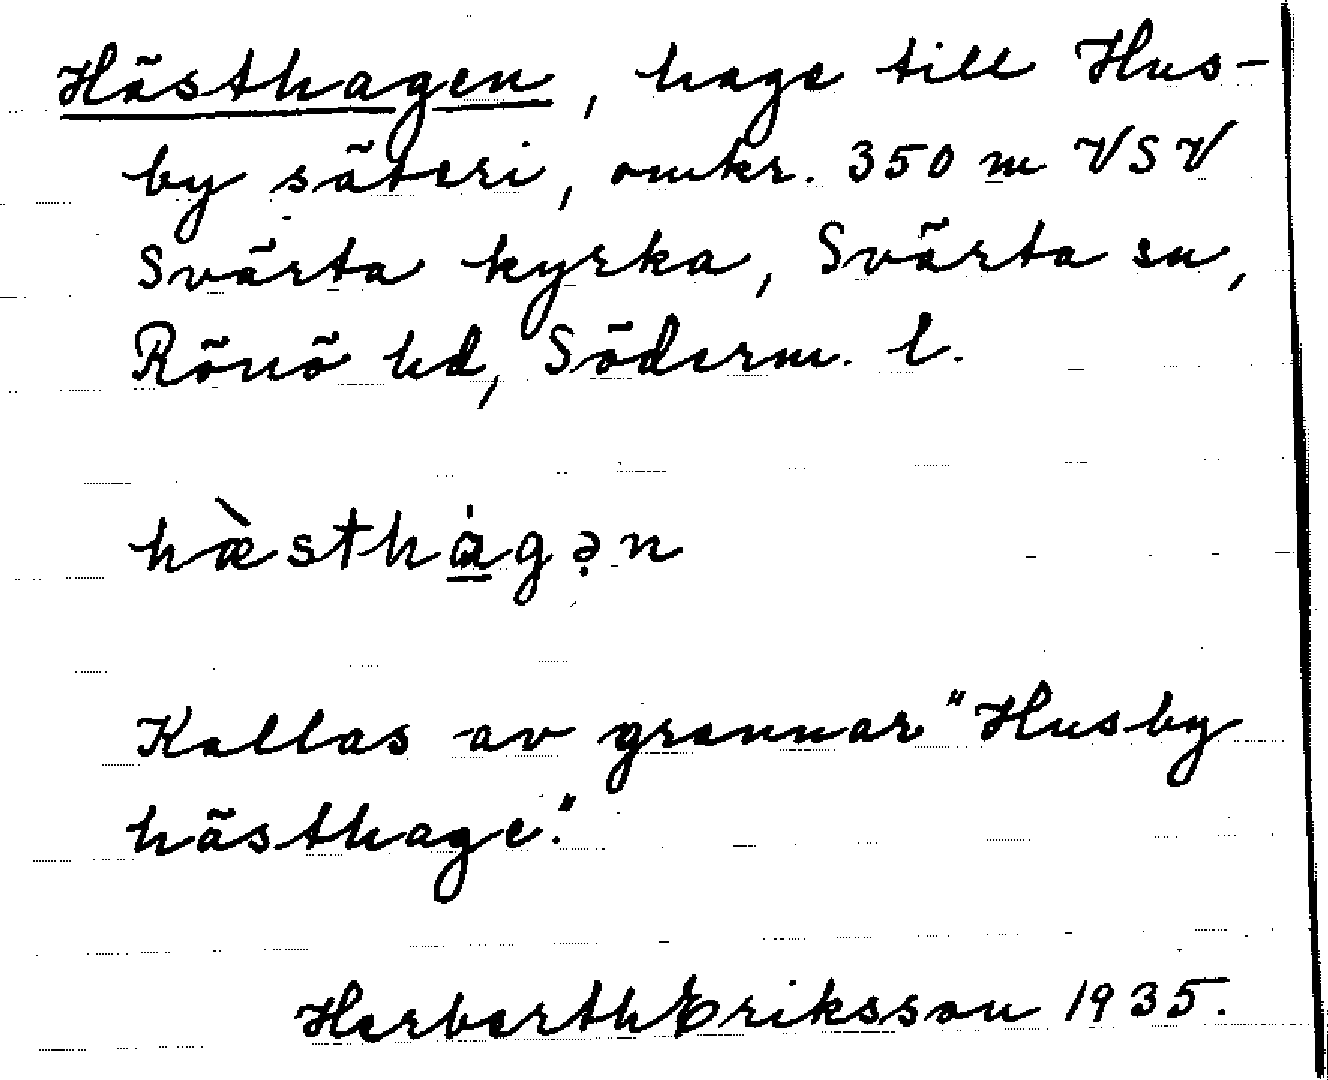 Hästhagen, hage till Hus-
by säteri, omkr. 350 m VSV
Svärta kyrka, Svärta sn,
Rönö hd, Söderm. l.
hæ̀sthɑ̇gə̣n
Kallas av grannar "Husby
hästhage."
Herberth Eriksson 1935.